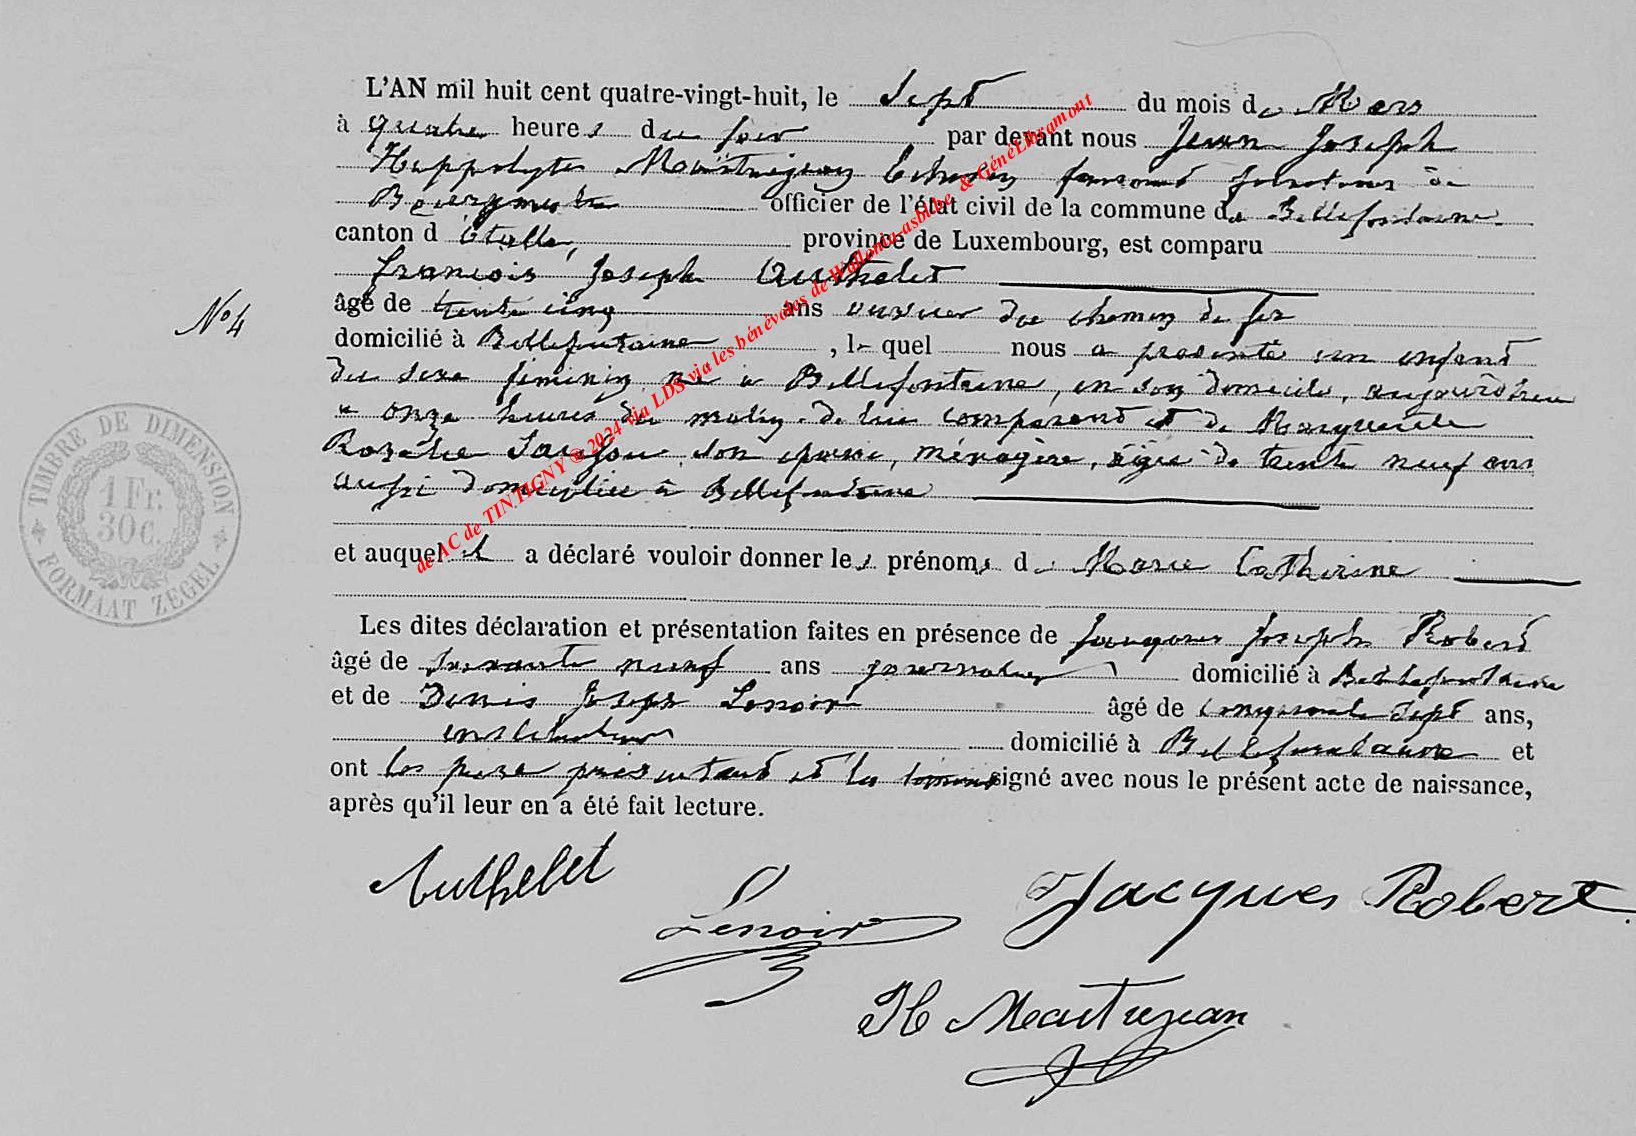 L'AN mil huit cent quatre-vingt-huit, le Sept du mois de Mars
à quatre heures du soir par devant nous Jean Joseph
Hippolyte Maitrejean Echevin faisant fonctions de
Bourgmestre officier de l'état civil de la commune de Bellefontaine
canton d'étalle, province de Luxembourg, est comparu
françois Joseph Authelet
N° 4
âgé de trente cinq ans ouvrier du chemin de fer
domicilié à Bellefontaine, le quel nous a présenté un enfant
du sexe féminin né à Bellefontaine, en son domicile, aujourd'hui
à onze heures du matin de lui comparant et de Marguerite
Rosalie son épouse, ménagère, âgée de trente neuf ans
aussi domiciliée à Bellefontaine
et auquel il a déclaré vouloir donner les prénoms de Marie Catherine
Les dites déclaration et présentation faites en présence de Jacques Joseph Robert
âgé de soixante neuf ans journalier domicilié à Bellefontaine
et de Denis Joseph Lenoir âgé de cinquante sept ans,
instituteur domicilié à Bellefontaine et
ont les père présentant et les témoins signé avec nous le présent acte de naissance,
après qu'il leur en a été fait lecture.
Authelet
Lenoir
Jacques Robert
H Maitrejean
TIMBRE DE DIMENSION
1 Fr.
30 c.
FORMAAT ZEGEL
de AC de TINTIGNY @ 2024 via LDS via les bénévoles de Wallonia-asbl.be & GénéLibramont